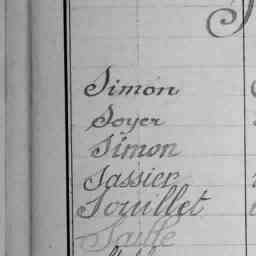 Simon
Soyer
Simon
Sassier
Souillet
Saille